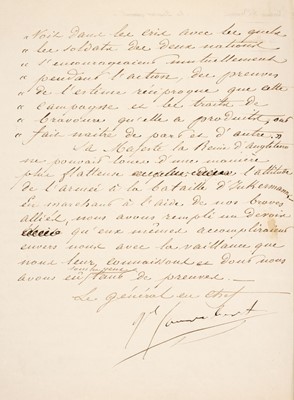 « Voit dans les cris avec lesquels
« les soldats des deux nations
« s'encourageaient mutuellement
« pendant l'action, des preuves
« de l'estime réciproque que cette
« campagne et les traits de
« bravoure qu'elle a produits, ont
« fait naître de part et d'autre. »
Sa Majesté la Reine d'Angleterre
ne pouvait louer d'une manière
plus flatteuse l'attitude
de l'armée à la bataille d'Inkermann.
En marchant à l'aide de nos braves
alliés, nous avons rempli un devoir
qu'eux mêmes accompliraient
envers nous avec la vaillance que
nous leur connaissons et dont nous
avons eu sous les yeux tant de preuves. —
Le général en chef
Gal Canrobert